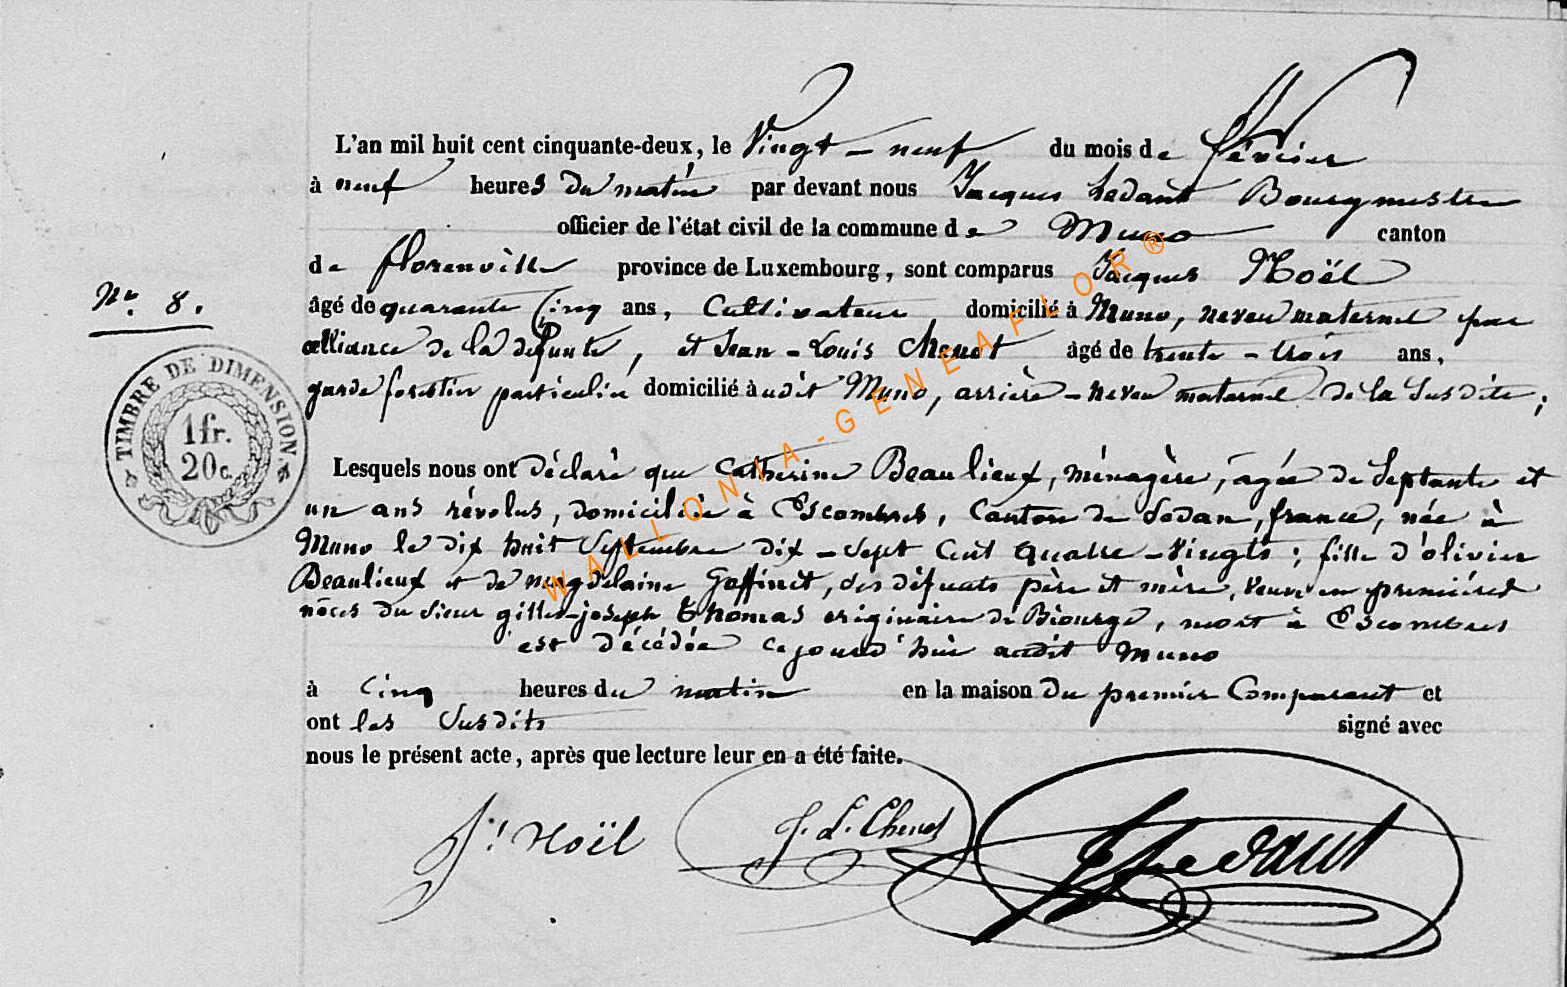 L'an mil huit cent cinquante-deux, le Vingt-neuf du mois de février
à neuf heures du matin par devant nous Jacques Ledant Bourgmestre
officier de l'état civil de la commune de Muno canton
de florenville province de Luxembourg, sont comparus Jacques Noël
Nr. 8.
âgé de quarante Cinq ans, Cultivateur domicilié à Muno, neveu maternel par
alliance de la défunte, et Jean-Louis Chenot âgé de trente-trois ans,
garde forestier particulier domicilié audit Muno, arrière-neveu maternel de la susdite;
TIMBRE DE DIMENSION.
1 fr.
20 c.
Lesquels nous ont déclaré que Catherine Beaulieux, ménagère, âgée de septante et
un ans révolus, domiciliée à Escombres, Canton de Sedan, france, née à
Muno le dix huit Septembre dix-sept Cent quatre-vingts; fille d'olivier
Beaulieux et de magdelaine Goffinet, des défunts père et mère, veuve en premières
nôces du Sieur gilles-joseph thomas originaire de Biourge, mort à Escombres
est décédée ce jourd'hui audit Muno
à Cinq heures du matin en la maison du premier Comparant et
ont les susdits signé avec
nous le présent acte, après que lecture leur en a été faite.
J. Noël J. L. Chenot JLedant
WALLONIA-GENEAFLOR®